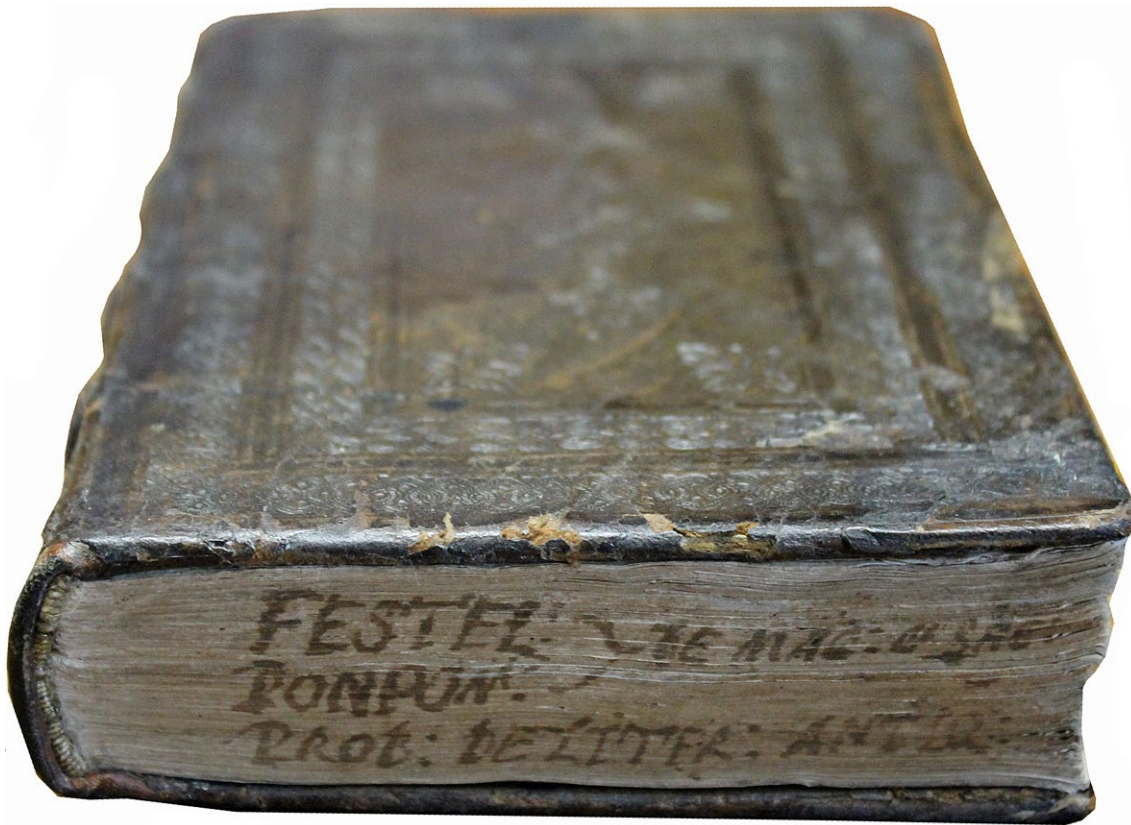 FESTEL: DE MAG: & SAC
PONPON:
PROB: DE LITER: ANTIQ: